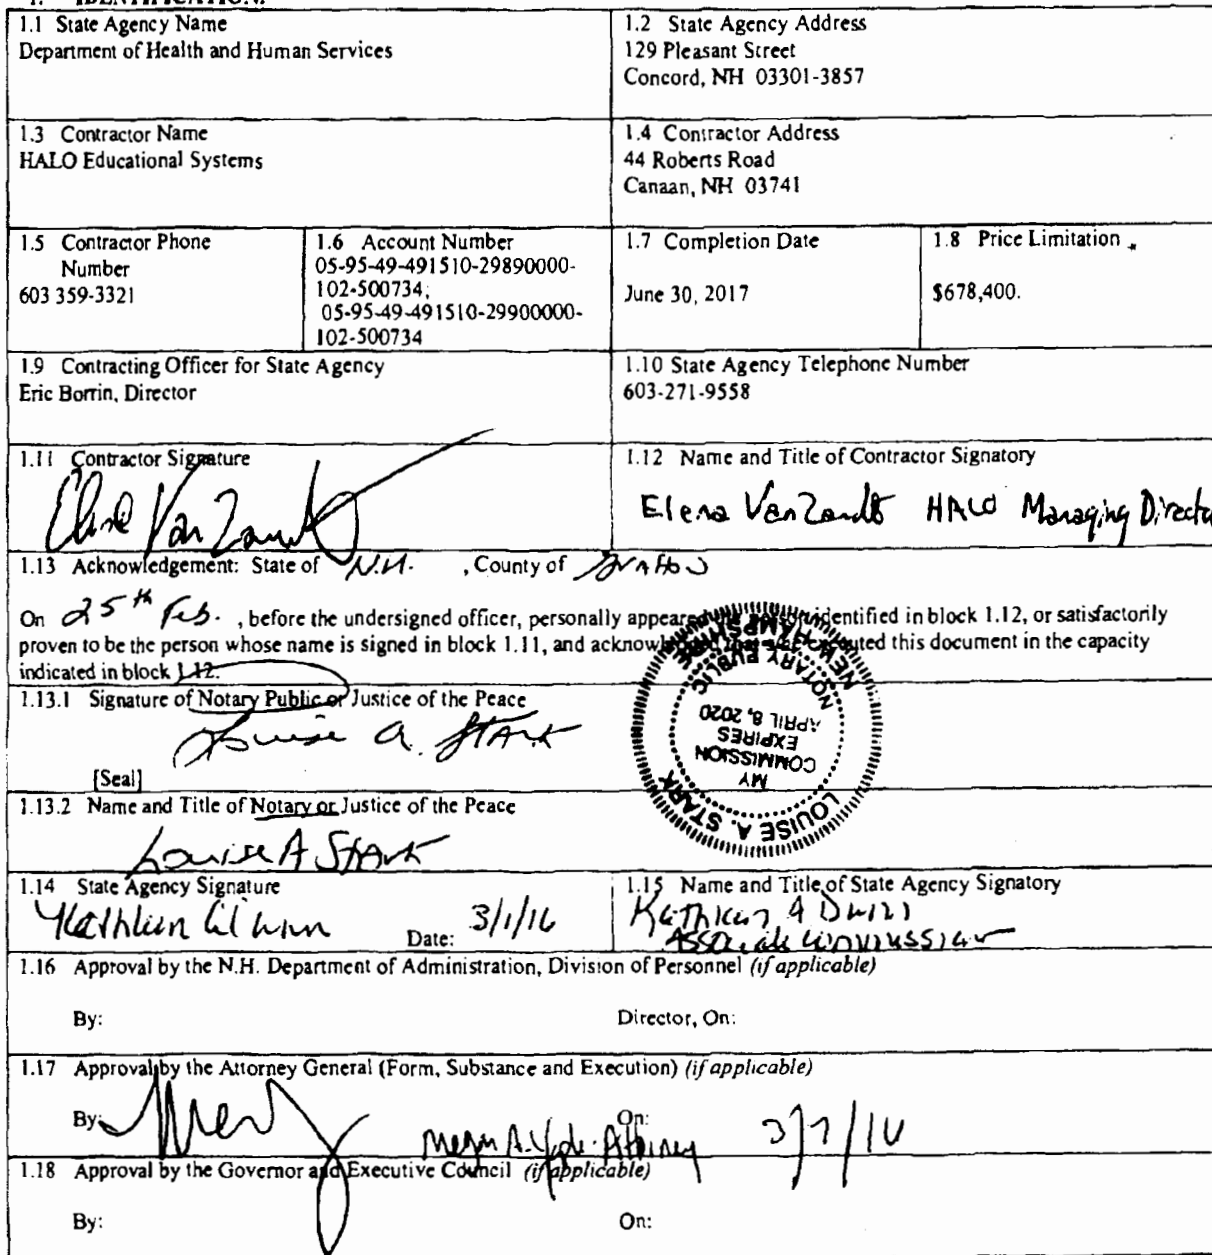 1. IDENTIFICATION.
1.1 State Agency Name
Department of Health and Human Services
1.2 State Agency Address
129 Pleasant Street
Concord, NH 03301-3857
1.3 Contractor Name
HALO Educational Systems
1.4 Contractor Address
44 Roberts Road
Canaan, NH 03741
1.5 Contractor Phone
Number
603 359-3321
1.6 Account Number
05-95-49-491510-29890000-
102-500734;
05-95-49-491510-29900000-
102-500734
1.7 Completion Date
June 30, 2017
1.8 Price Limitation
$678,400.
1.9 Contracting Officer for State Agency
Eric Borrin, Director
1.10 State Agency Telephone Number
603-271-9558
1.11 Contractor Signature
1.12 Name and Title of Contractor Signatory
Elena VanZandt HALO Managing Director
1.13 Acknowledgement: State of N.H. , County of Grafton
On 25th Feb. , before the undersigned officer, personally appeared the person identified in block 1.12, or satisfactorily
proven to be the person whose name is signed in block 1.11, and acknow executed this document in the capacity
indicated in block 1.12.
1.13.1 Signature of Notary Public or Justice of the Peace
Louise A. Stark
[Seal]
LOUISE A. STARK
MY
COMMISSION
EXPIRES
APRIL 8, 2020
NOTARY PUBLIC
NEW HAMPSHIRE
1.13.2 Name and Title of Notary or Justice of the Peace
Louise A Stark
1.14 State Agency Signature
Date: 3/1/16
1.15 Name and Title of State Agency Signatory
Kathleen A Dunn
Associate Commissioner
1.16 Approval by the N.H. Department of Administration, Division of Personnel (if applicable)
By:
Director, On:
1.17 Approval by the Attorney General (Form, Substance and Execution) (if applicable)
By:
Megan A. Yaple-Attorney
On: 3/7/16
1.18 Approval by the Governor and Executive Council (if applicable)
By:
On: